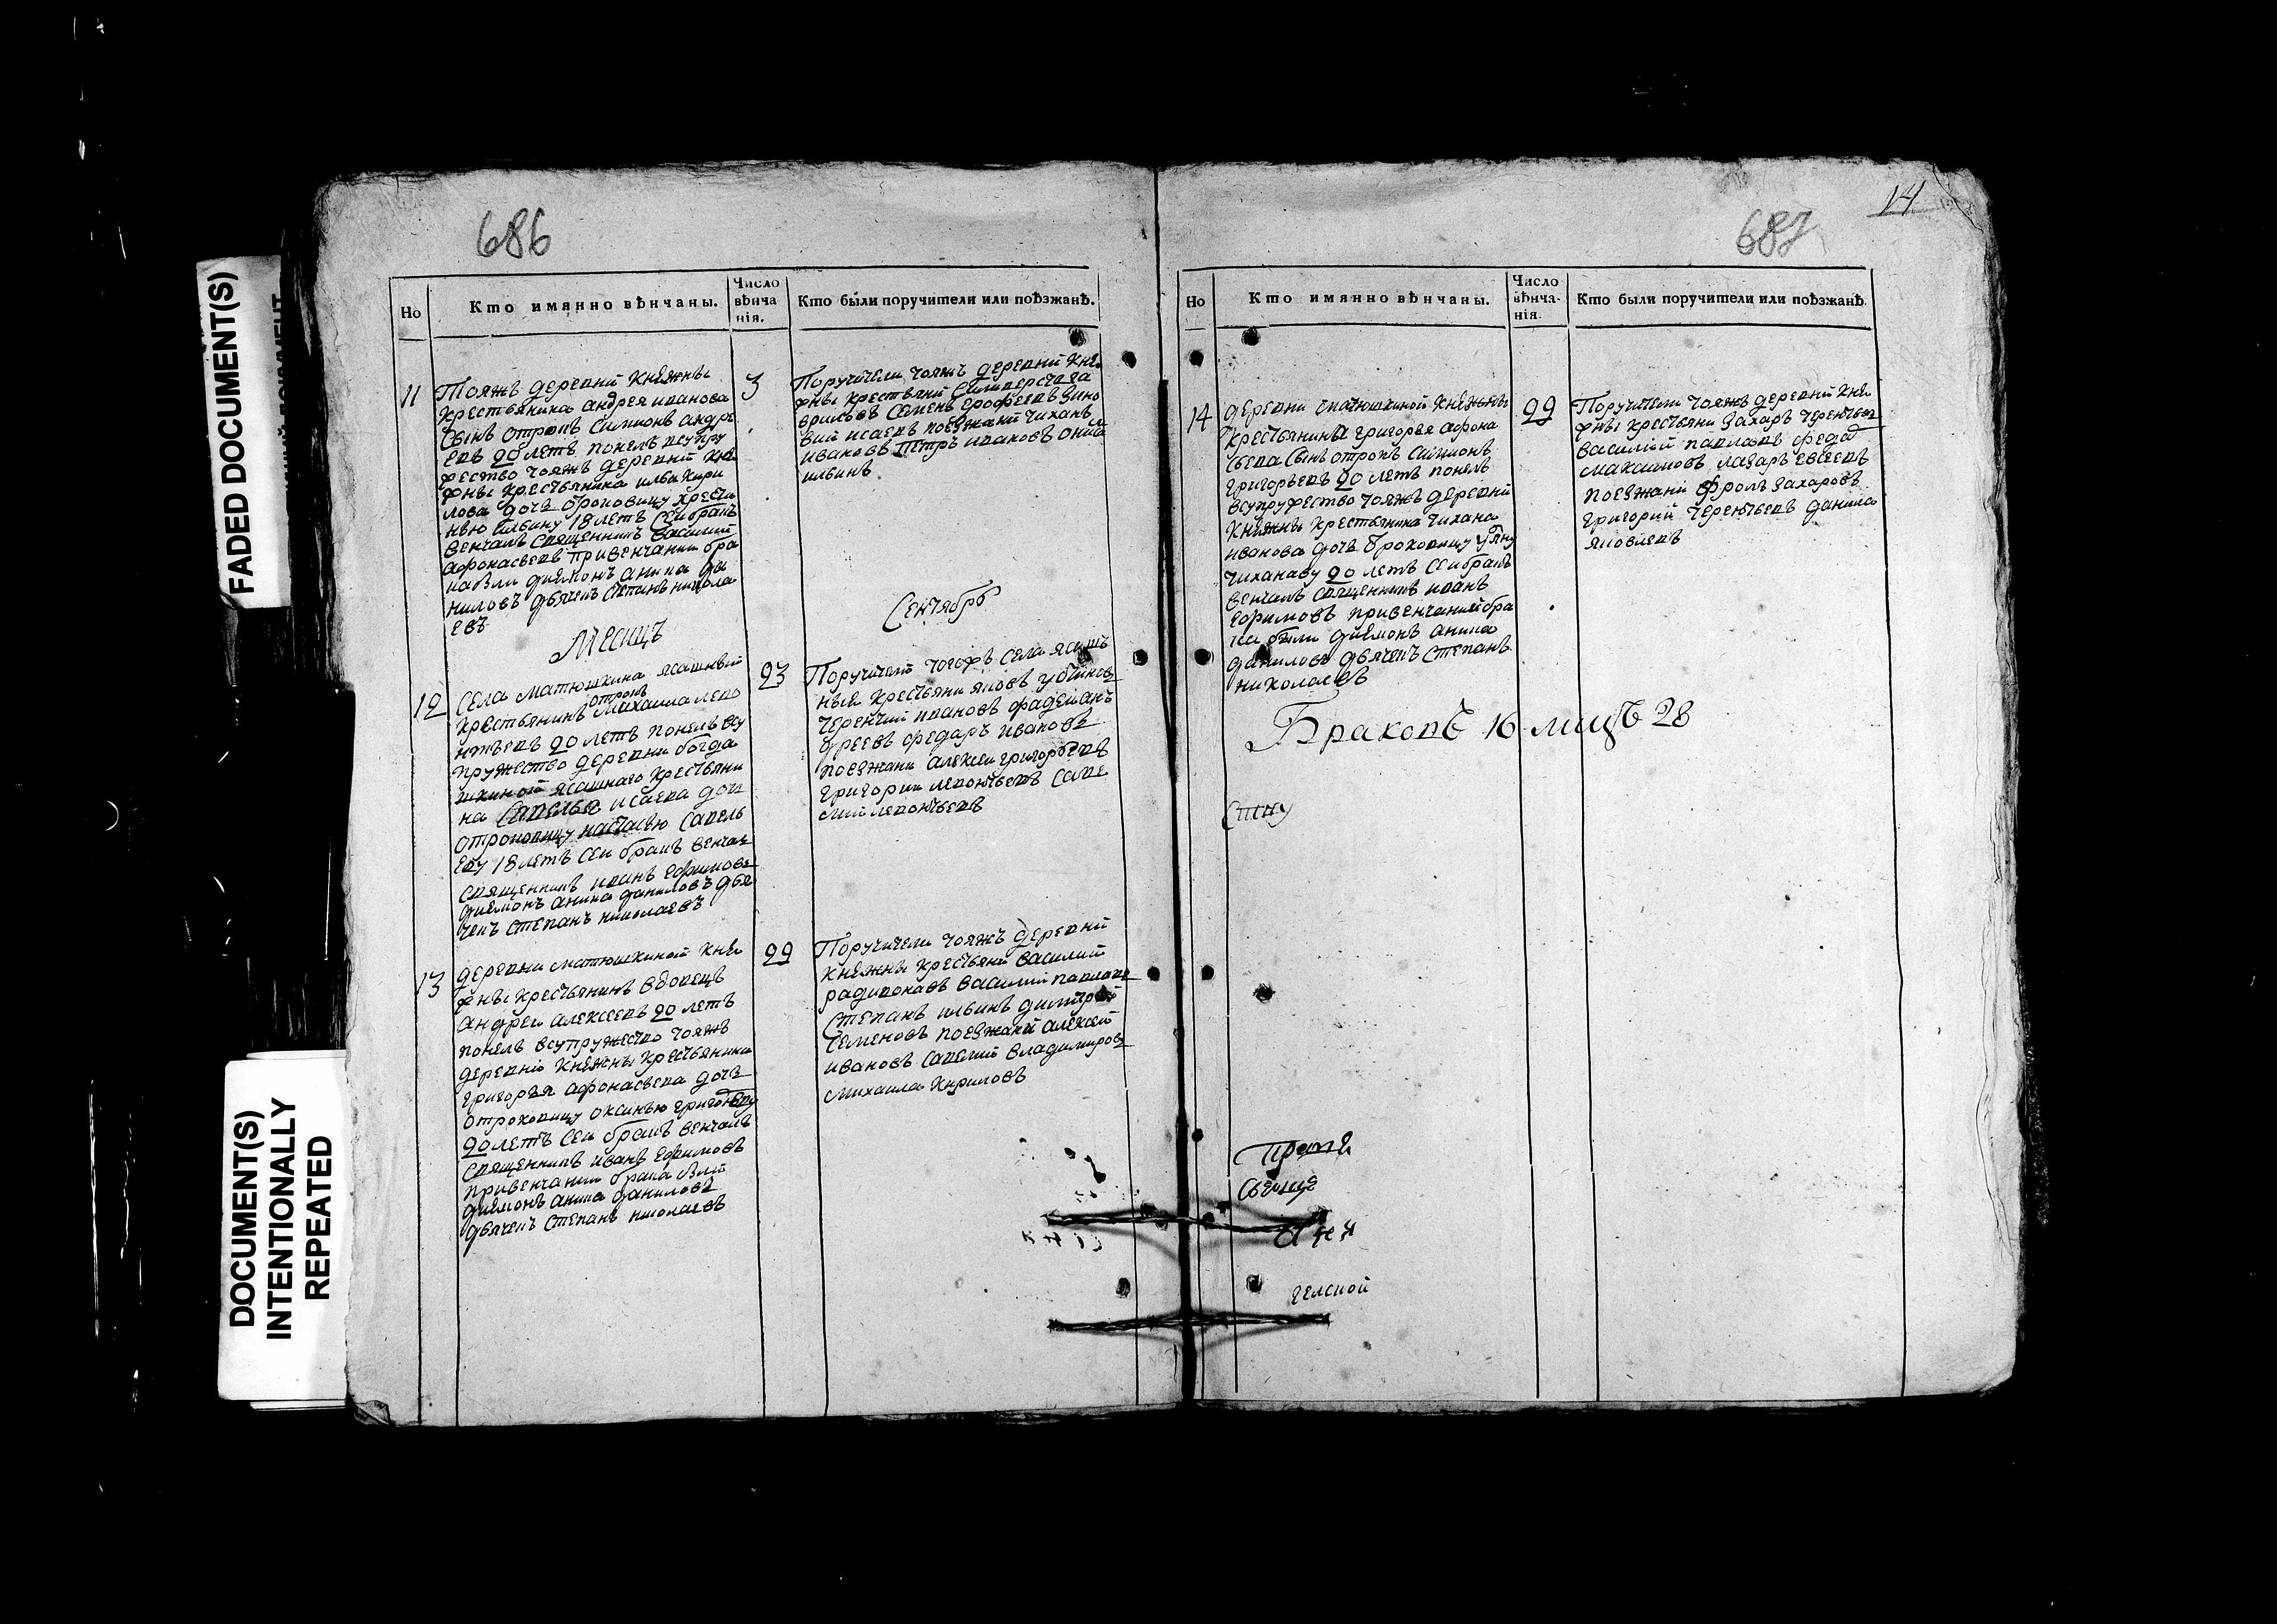 FADED DOCUMENT(S)
DOCUMENT(S)
INTENTIONALLY
REPEATED
686
Но
Кто имянно вѣнчаны.
Число
вѣнча
нія.
Кто были поручители или поѣзжанѣ.
11
Тояжъ деревни Княжны
крестьянина андрея иванова
сынъ отрокъ Симионъ андре
евъ 20 летъ понелъ всупру
жество тояжъ деревни Кня
жны крестьянина ильи кири
лова дочь отроковицу
18 летъ Сеи бракъ
венчалъ священникъ василий
афонасьевъ привенчании бра
ка были диямонъ аника да
ниловъ дьячекъ степанъ никола
евъ
3
Поручители тояжъ деревни Кня
жны крестьяни
Семенъ Ерофеевъ
исаевъ поезжани тиханъ
ивановъ Петръ ивановъ
ильинъ
Месяцъ
Сентябрь
12
Села матюшкина ясашный
отрокъ
крестьянинъ михаила лео
нтьевъ 20 летъ понелъ всу
пружество деревни богда
шкиной ясашнаго крестьяни
на Савелья исаева доч
отроковицу настасью савель
еву 18 летъ сеи бракъ венчал
священникъ иванъ Ефимовъ
диямонъ аника даниловъ дья
чекъ степанъ николаевъ
23
Поручители тогожъ села ясаш
ныя крестьяни яковъ
терентий ивановъ
федаръ ивановъ
поезжани алексеи григорьевъ
григории леонтьевъ саве
лий леонтьевъ
13
деревни матюшкиной Кня
жны крестьянинъ вдовецъ
андреи алексеевъ 20 летъ
понелъ всупружество тояжъ
деревни Княжны крестьянина
григорья афонасьева дочь
отроковицу оксинью григорьеву
20 летъ сеи бракъ венчалъ
священникъ иванъ Ефимовъ
привенчании брака были
диямонъ аника даниловъ
дьячекъ степанъ николаевъ
29
Поручители тояжъ деревни
Княжны крестьяни василий
радионавъ василий павлавъ
Степанъ ильинъ димитрей
семеновъ поезжани алексей
ивановъ савелий владимировъ
михаила кириловъ
687
14
Но
Кто имянно вѣнчаны.
Число
вѣнча-
нія.
Кто были поручители или поѣзжанѣ.
14
деревни матюшкиной Княжны
крестьянина григорья афона
сьева сынъ отрокъ симионъ
григорьевъ 20 летъ понелъ
всупружество тояжъ деревни
Княжны крестьянина тихана
иванова дочь отроковицу
тиханаву 20 летъ сеи бракъ
венчалъ священникъ иванъ
Ефимовъ привенчании бра
ка были диямонъ аника
даниловъ дьячекъ степанъ
николаевъ
29
Поручители тояжъ деревни Кня
жны крестьяни захаръ терентьев
василий павлавъ федор
максимовъ лазаръ евсеевъ
поезжани фролъ захаровъ
григорий терентьевъ данила
яковлевъ
Браковъ 16
28